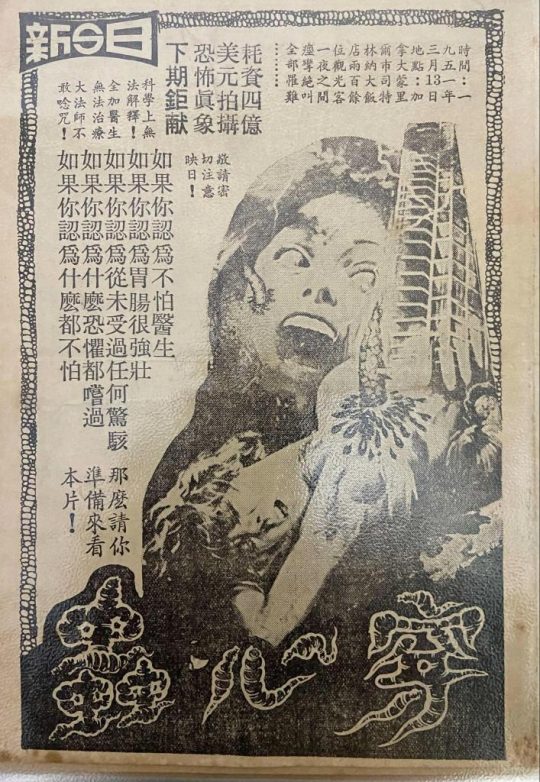 新今日
時間:一
九五一年
三月13日
地點:加
拿大蒙里
爾市司特
林納大飯
店兩百餘
位觀光客
一夜之間
痙攣絕叫
全部罹難………
耗資四億
美元拍攝
恐怖眞象
下期鉅献
科學上無
法解釋!
全加醫生
無法治療
大法師不
敢唸咒!
敬請密
切注意
映日!
如果你認爲不怕醫生
如果你認爲胃腸很强壯
如果你認爲從未受過任何驚駭
如果你認爲什麽恐懼都嚐過
如果你認爲什麽都不怕
那麽請你
準備來看
本片!
穿心蟲